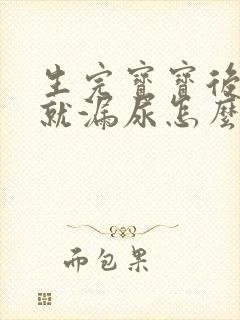 生完寶寶後
就漏尿怎麼
而包果